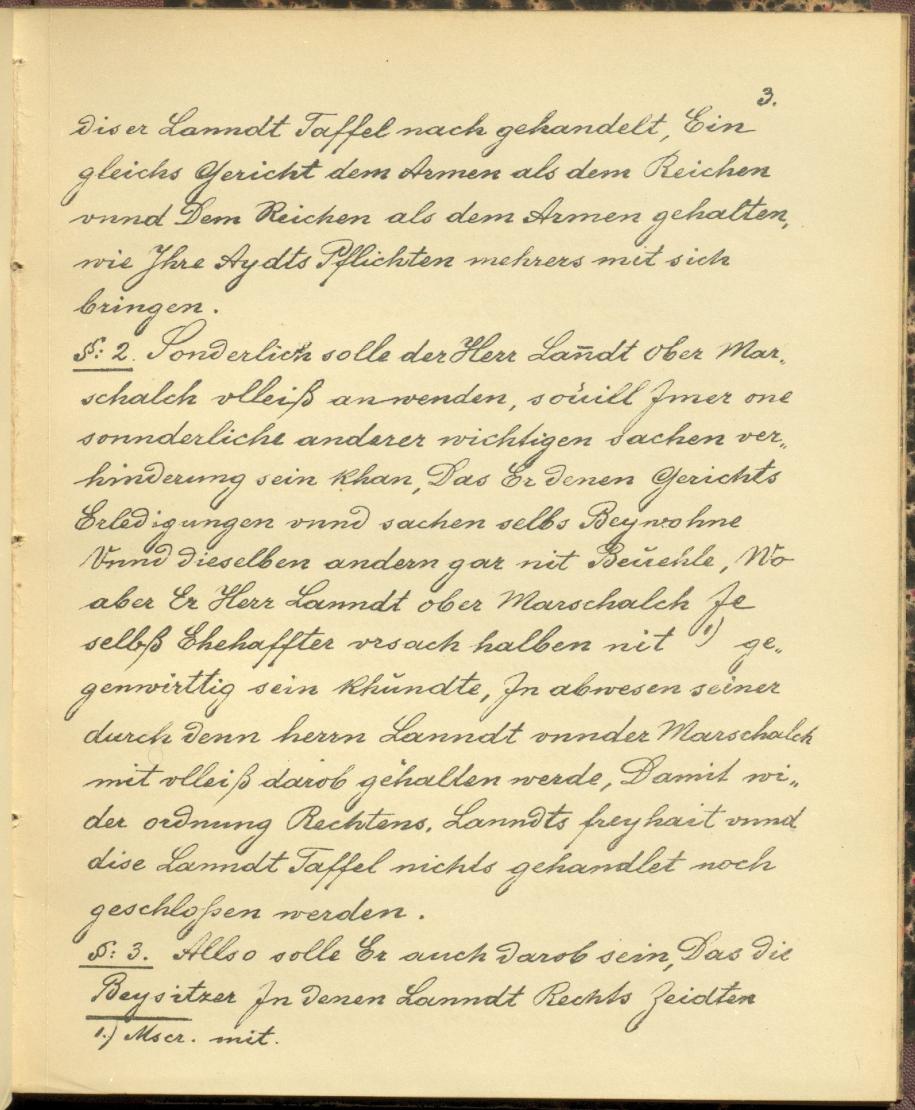 3.
diser Lanndt Taffel nach gehandelt, Ein
gleichs Gericht dem Armen als dem Reichen
vnnd Dem Reichen als dem Armen gehalten,
wie Jhre Aydts Pflichten mehrers mit sich
bringen.
§: 2. Sonderlich solle der Herr Lan̄dt Ober Mar„
schalch vlleiß anwenden, souill Jmer one
sonnderliche anderer wichtigen sachen ver„
hinderung sein khan, Das Er denen Gerichts
Erledigungen vnnd sachen selbs Beywohne
Vnnd dieselben andern gar nit Beuehle, Wo
aber Er Herr Lanndt ober Marschalch Je
selbß Ehehaffter vrsach halben nit 1) ge„
genwirttig sein khŭndte, Jn abwesen seiner
durch denn herrn Lanndt vnnder Marschalch
mit vlleiß darob gehalten werde, Damit wi„
der ordnung Rechtens, Lanndts freyhait vnnd
dise Lanndt Taffel nichts gehandlet noch
geschloßen werden.
§: 3. Allso solle Er auch Darob sein, Das die
Beysitzer Jn denen Lanndt Rechts Zeidten
1.) Mscr. mit.